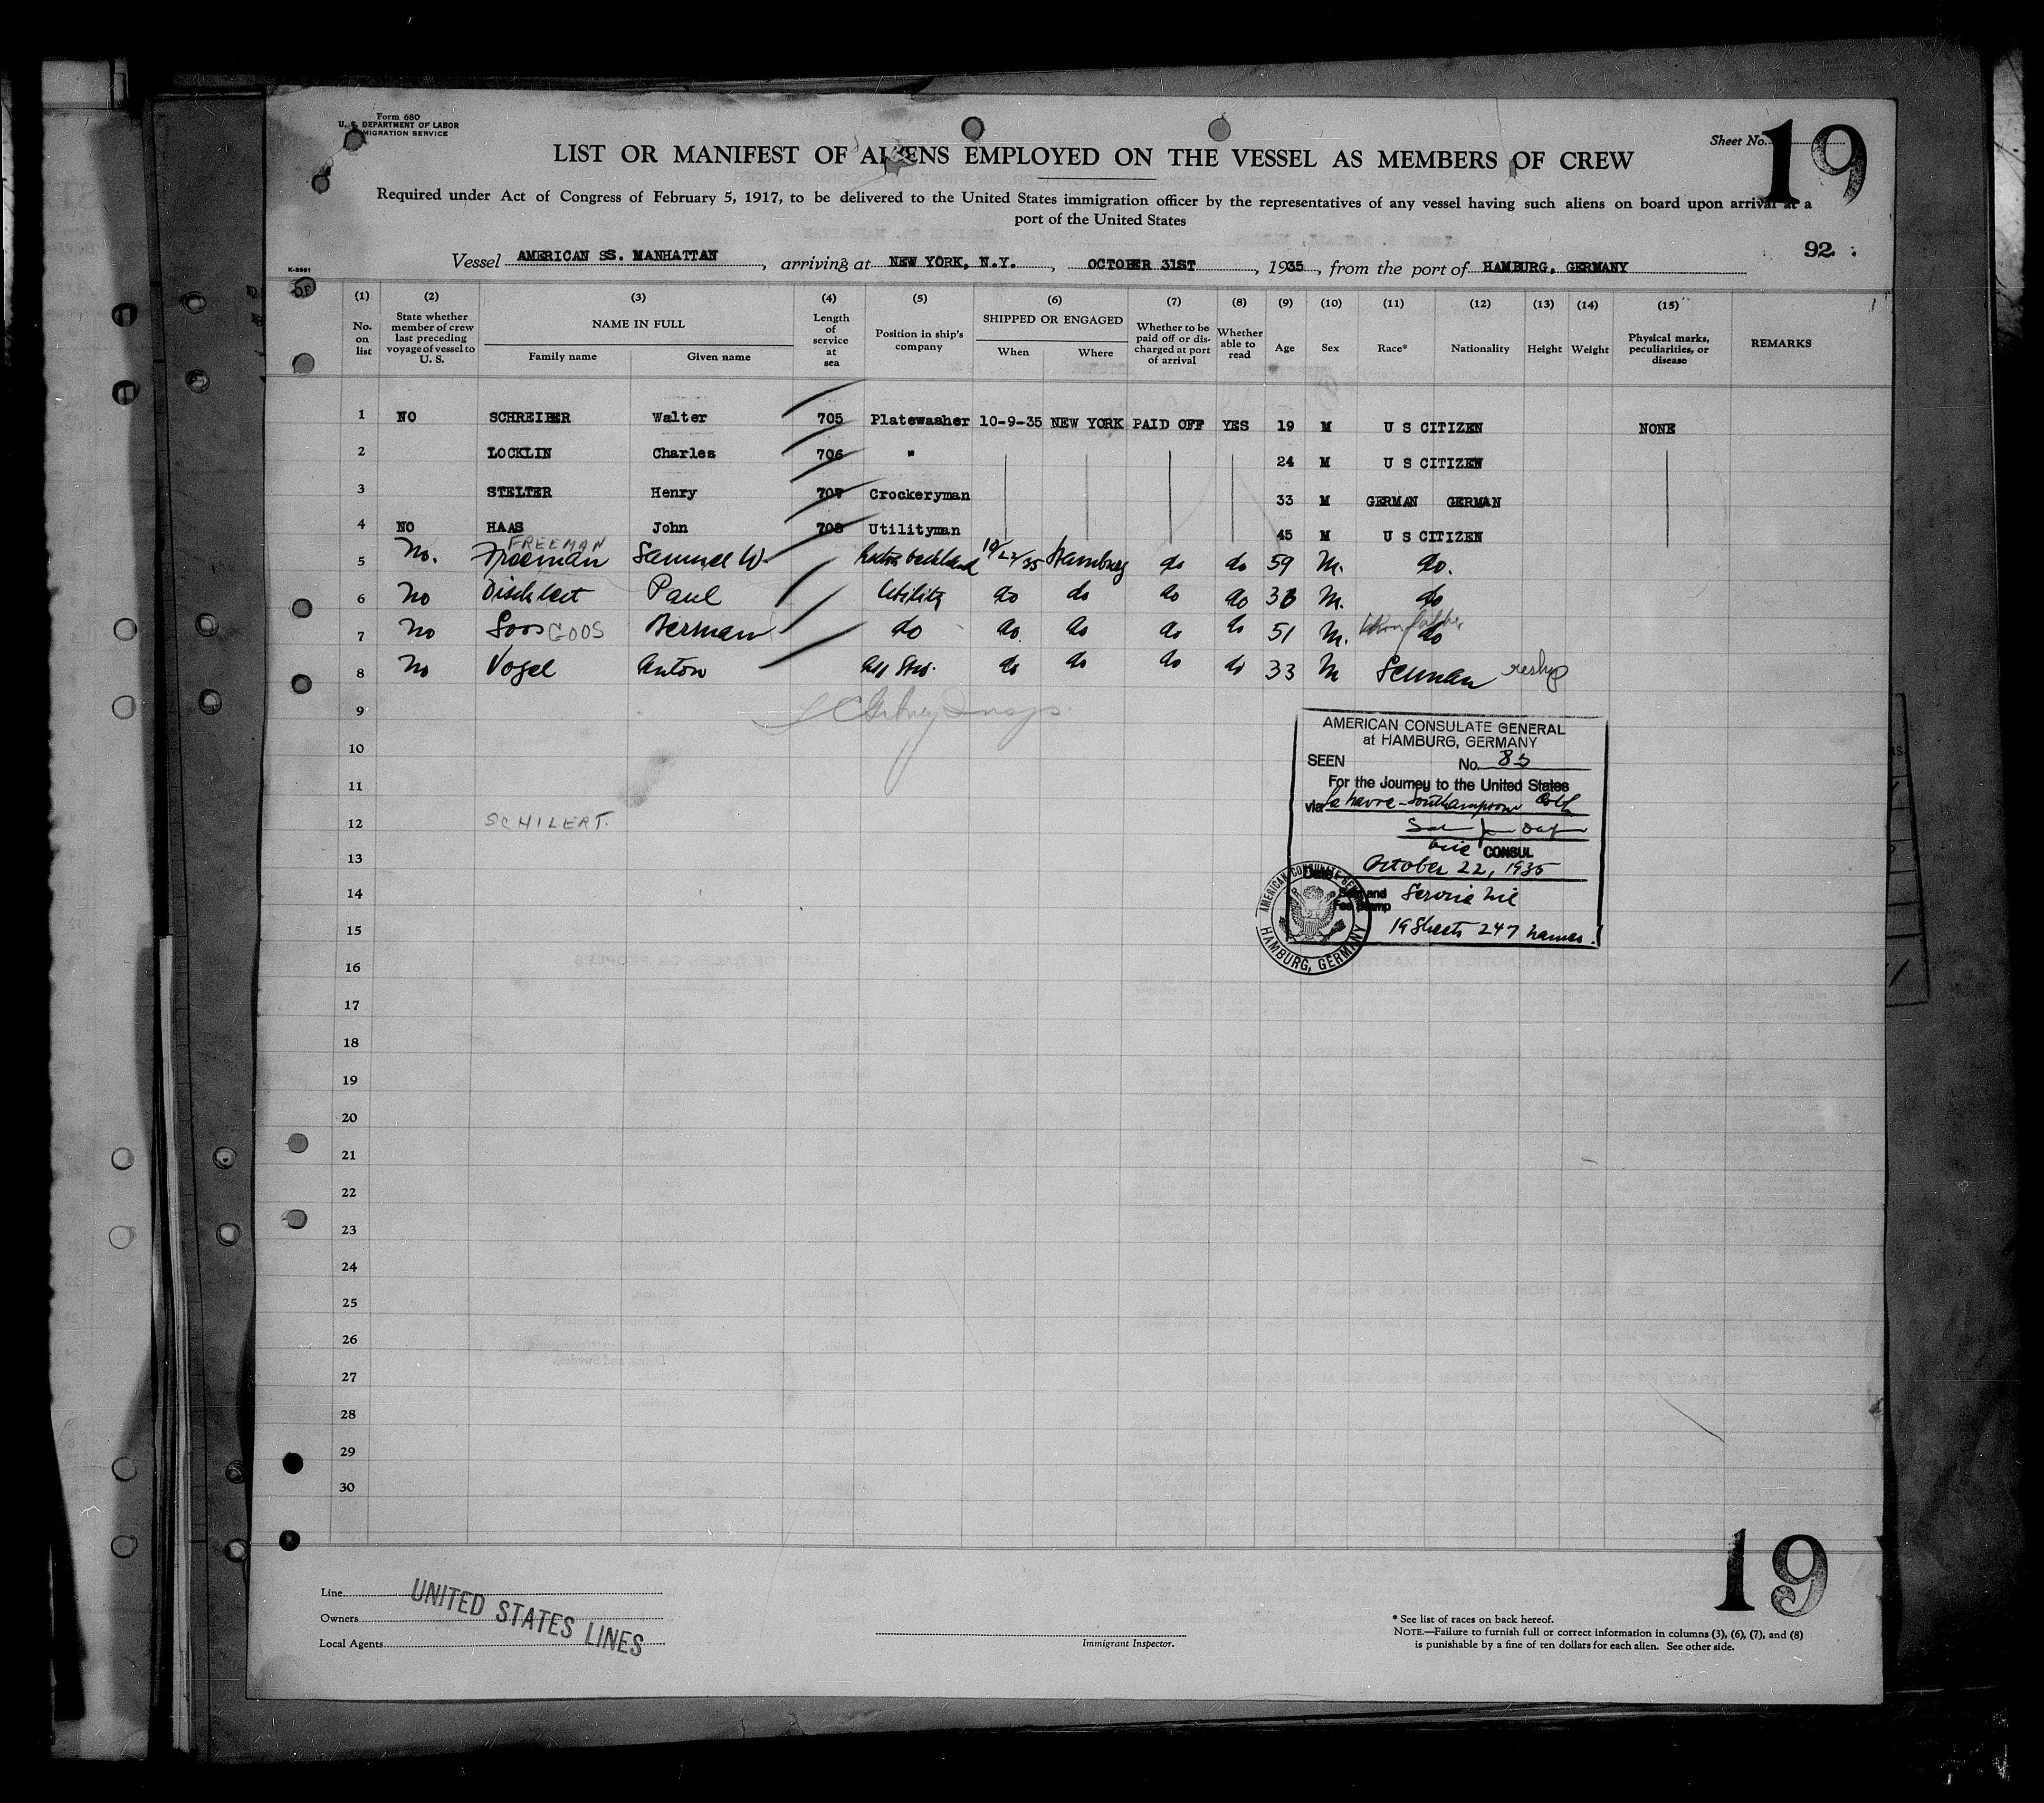 Form 680
U. S. DEPARTMENT OF LABOR
IMMIGRATION SERVICE
Sheet No. 19
LIST OR MANIFEST OF ALIENS EMPLOYED ON THE VESSEL AS MEMBERS OF CREW
Required under Act of Congress of February 5, 1917, to be delivered to the United States immigration officer by the representatives of any vessel having such aliens on board upon arrival at a
port of the United States
Vessel AMERICAN SS. MANHATTAN, arriving at NEW YORK, N.Y., OCTOBER 31ST, 1935, from the port of HAMBURG, GERMANY
92
K-2981
(1) (2) (3) (4) (5) (6) (7) (8) (9) (10) (11) (12) (13) (14) (15)
No. on list
State whether member of crew last preceding voyage of vessel to U. S.
NAME IN FULL
Family name Given name
Length of service at sea
Position in ship's company
SHIPPED OR ENGAGED
When Where
Whether to be paid off or discharged at port of arrival
Whether able to read
Age Sex Race* Nationality Height Weight
Physical marks, peculiarities, or disease
REMARKS
1 NO SCHREIBER Walter 705 Platewasher 10-9-35 NEW YORK PAID OFF YES 19 M U S CITIZEN NONE
2 LOCKLIN Charles 706 " 24 M U S CITIZEN
3 STELTER Henry 707 Crockeryman 33 M GERMAN GERMAN
4 NO HAAS John 708 Utilityman 45 M U S CITIZEN
FREEMAN
5 No. Freeman Samuel W. 10/22/35 Hamburg do do 59 M. do.
6 No Paul Utility do do do do M. do
7 No Goos GOOS Herman do do do do do 51 M. do
8 No Vogel Anton do do do do 33 M German reship
9
10
11
12 SCHILERT.
13
14
15
16
17
18
19
20
21
22
23
24
25
26
27
28
29
30
AMERICAN CONSULATE GENERAL
at HAMBURG, GERMANY
SEEN No. 85
For the Journey to the United States
via Le havre - Southampton
Vice CONSUL
Date October 22, 1935
Seal and
Fee Stamp
19 Sheets 247 names.
AMERICAN CONSULATE GENERAL
HAMBURG, GERMANY
19
Line
Owners
Local Agents
UNITED STATES LINES
Immigrant Inspector.
* See list of races on back hereof.
NOTE.—Failure to furnish full or correct information in columns (3), (6), (7), and (8)
is punishable by a fine of ten dollars for each alien. See other side.